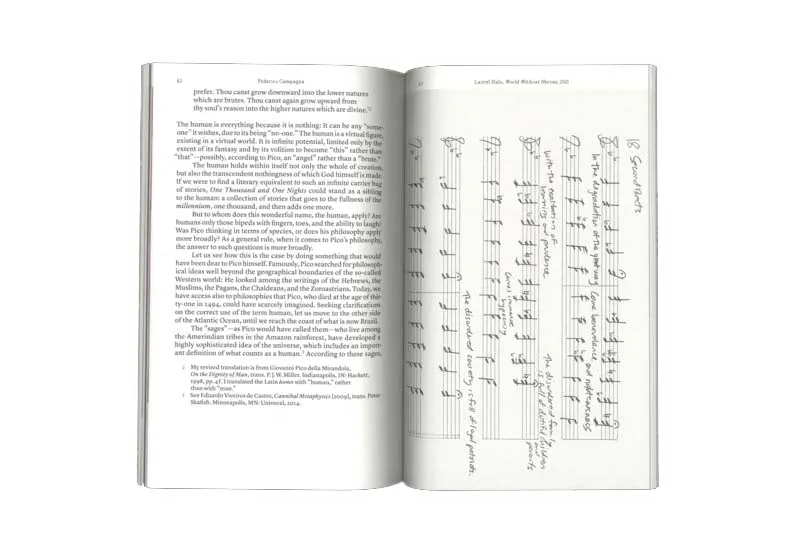 62 Federico Campagna
prefer. Thou canst grow downward into the lower natures
which are brutes. Thou canst again grow upward from
thy soul's reason into the higher natures which are divine.²
The human is everything because it is nothing: It can be any "some-
one" it wishes, due to its being "no-one." The human is a virtual figure,
existing in a virtual world. It is infinite potential, limited only by the
extent of its fantasy and by its volition to become "this" rather than
"that"—possibly, according to Pico, an "angel" rather than a "brute."
The human holds within itself not only the whole of creation,
but also the transcendent nothingness of which God himself is made.
If we were to find a literary equivalent to such an infinite carrier bag
of stories, One Thousand and One Nights could stand as a sibling
to the human: a collection of stories that goes to the fullness of the
millennium, one thousand, and then adds one more.
But to whom does this wonderful name, the human, apply? Are
humans only those bipeds with fingers, toes, and the ability to laugh?
Was Pico thinking in terms of species, or does his philosophy apply
more broadly? As a general rule, when it comes to Pico's philosophy,
the answer to such questions is more broadly.
Let us see how this is the case by doing something that would
have been dear to Pico himself. Famously, Pico searched for philosoph-
ical ideas well beyond the geographical boundaries of the so-called
Western world: He looked among the writings of the Hebrews, the
Muslims, the Pagans, the Chaldeans, and the Zoroastrians. Today, we
have access also to philosophies that Pico, who died at the age of thir-
ty-one in 1494, could have scarcely imagined. Seeking clarifications
on the correct use of the term human, let us move to the other side
of the Atlantic Ocean, until we reach the coast of what is now Brazil.
The "sages"—as Pico would have called them—who live among
the Amerindian tribes in the Amazon rainforest, have developed a
highly sophisticated idea of the universe, which includes an import-
ant definition of what counts as a human.³ According to these sages,
2 My revised translation is from Giovanni Pico della Mirandola,
On the Dignity of Man, trans. P. J. W. Miller. Indianapolis, IN: Hackett,
1998, pp. 4f. I translated the Latin homo with "human," rather
than with "man."
3 See Eduardo Viveiros de Castro, Cannibal Metaphysics [2009], trans. Peter
Skafish. Minneapolis, MN: Univocal, 2014.
Laurel Halo, World Without Heroes, 2021
18 Second Part
In the degradation of the great way
Come benevolence and righteousness
With the exaltation of
learning and prudence
Comes immense
hypocrisy
The disordered family
is full of dutiful children
and
parents
The disordered society is full of loyal patriots.